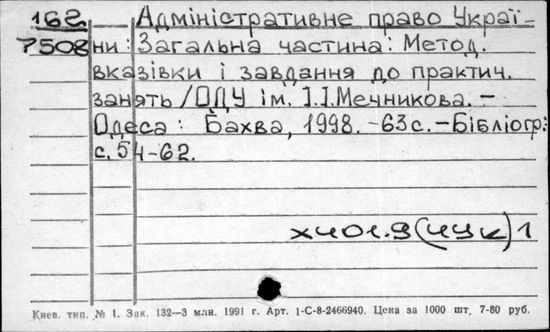 162 Адміністративне право Украї-
7508 ни: Загальна частина: Метод.
вказівки і завдання до практич.
занять/ОДУ ім. І.І.Мечникова. –
Одеса: Бахва, 1998. -63с.-Бібліогр:
с.54-62.
х401.9(4УК)1
Киев. тип. № 1. Зак. 132—3 млн. 1991 г. Арт. 1-С-8-2466940. Цена за 1000 шт. 7-80 руб.